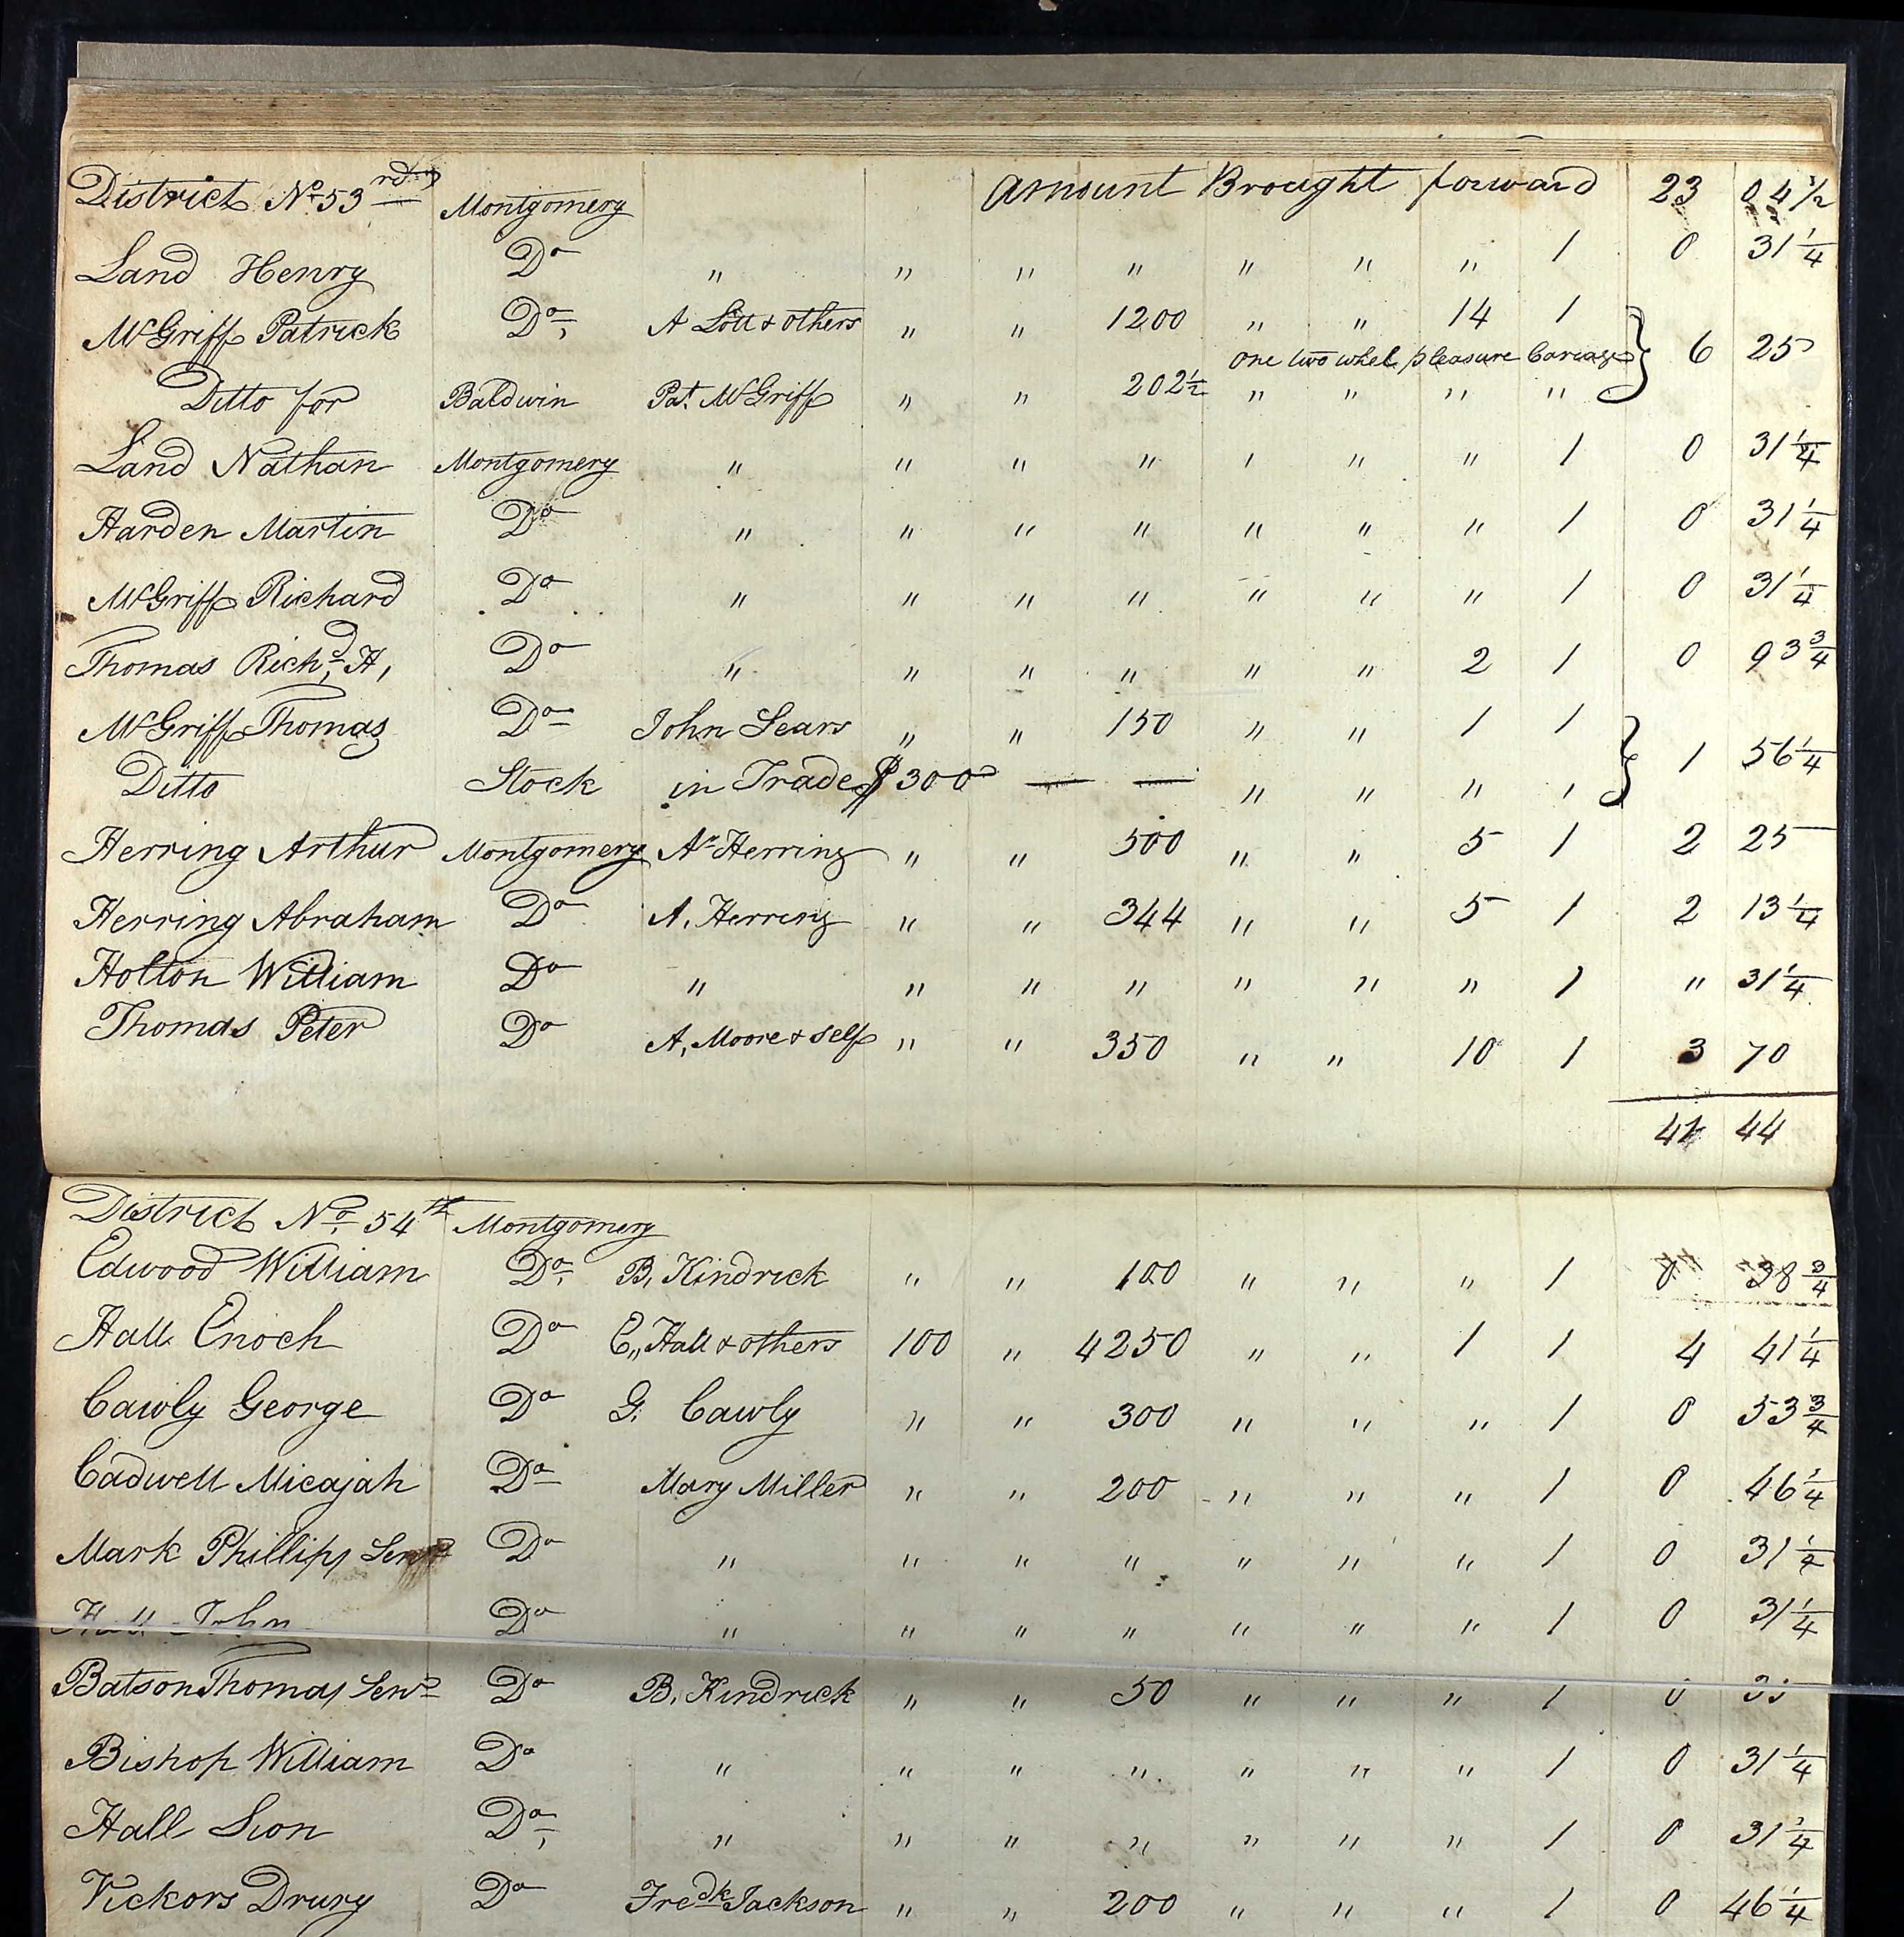 District No 53rd Montgomery Amount Brought forward 23 04 1/2
Land Henry Do " " " " " " " 1 0 31 1/4
McGriff Patrick Do, A Lott & others " " 1200 " " 14 1 6 25
One two whel pleasure Cariage
Ditto for Baldwin Pat. McGriff " " 202 1/2 " " " "
Land Nathan Montgomery " " " " ' " " 1 0 31 1/4
Harden Martin Do " " " " " " " 1 0 31 1/4
McGriff Richard Do " " " " " " " 1 0 31 1/4
Thomas Richd, H, Do " " " " " " 2 1 0 93 3/4
McGriff Thomas Do John Sears " " 150 " " 1 1 1 56 1/4
Ditto Stock in Trade $300 — — " " " '
Herring Arthur Montgomery Ar Herring " " 500 " " 5 1 2 25
Herring Abraham Do A, Herring " " 344 " " 5 1 2 13 1/4
Holton William Do " " " " " " " 1 " 31 1/4
Thomas Peter Do A, Moore & self " " 350 " " 10 1 3 70
44
District No, 54th Montgomery
Edwood William Do, B, Kindrick " " 100 " " " 1 38 3/4
Hall Enoch Do E,, Hall & others 100 " 4250 " " 1 1 4 41 1/4
Cawly George Do G. Cawly " " 300 " " " 1 0 53 3/4
Cadwell Micajah Do Mary Miller " " 200 " " " 1 0 46 1/4
Mark Phillips Senr Do " " " " " " " 1 0 31 1/4
Hall John Do " " " " " " " 1 0 31 1/4
Batson Thomas Senr Do B, Kindrick " " 50 " " " 1 0
Bishop William Do " " " " " " " 1 0 31 1/4
Hall Sion Do, " " " " " " " 1 0 31 1/4
Vickors Drury Do Fredk Jackson " " 200 " " " 1 0 46 1/4